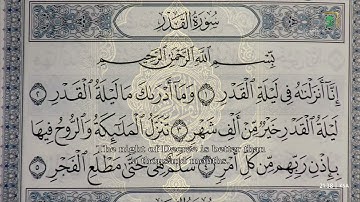 سُورَةُ القَدْرِ
بِسْمِ اللَّهِ الرَّحْمَٰنِ الرَّحِيمِ
إِنَّا أَنزَلْنَٰهُ فِى لَيْلَةِ ٱلْقَدْرِ ١ وَمَآ أَدْرَىٰكَ مَا لَيْلَةُ ٱلْقَدْرِ ٢
لَيْلَةُ ٱلْقَدْرِ خَيْرٌ مِّنْ أَلْفِ شَهْرٍ ٣ تَنَزَّلُ ٱلْمَلَٰٓئِكَةُ وَٱلرُّوحُ فِيهَا
The night of Decree is better than
a thousand months.
بِإِذْنِ رَبِّهِم مِّن كُلِّ أَمْرٍ ٤ سَلَٰمٌ هِىَ حَتَّىٰ مَطْلَعِ ٱلْفَجْرِ ٥